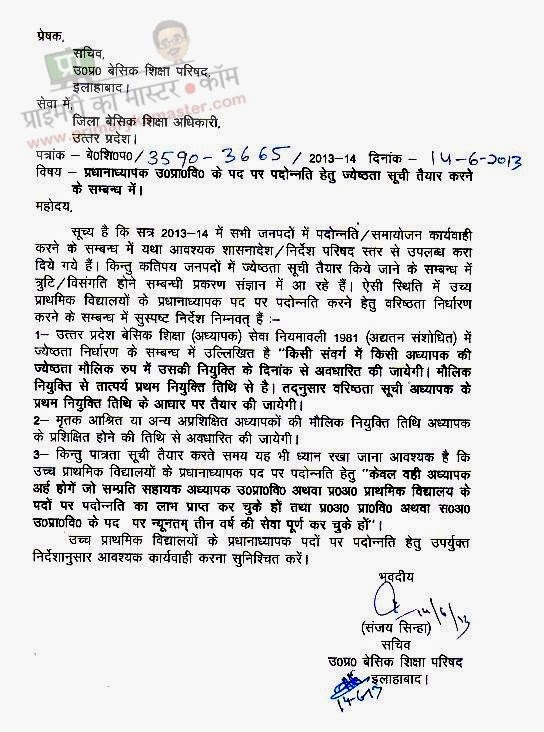 प्रेषक,
सचिव,
उ0प्र0 बेसिक शिक्षा परिषद,
इलाहाबाद।
सेवा में,
जिला बेसिक शिक्षा अधिकारी,
उत्तर प्रदेश।
प्रा
प्राइमरी का मास्टर ● कॉम
www.primarykamaster.com
पत्रांक – बे0शि0प0/3590-3665/ 2013-14 दिनांक - 14-6-2013
विषय – प्रधानाध्यापक उ0प्रा0वि0 के पद पर पदोन्नति हेतु ज्येष्ठता सूची तैयार करने
के सम्बन्ध में।
महोदय,
सूच्य है कि सत्र 2013-14 में सभी जनपदों में पदोन्नति/समायोजन कार्यवाही
करने के सम्बन्ध में यथा आवश्यक शासनादेश/निर्देश परिषद स्तर से उपलब्ध करा
दिये गये हैं। किन्तु कतिपय जनपदों में ज्येष्ठता सूची तैयार किये जाने के सम्बन्ध में
त्रुटि/विसंगति होने सम्बन्धी प्रकरण संज्ञान में आ रहे हैं। ऐसी स्थिति में उच्च
प्राथमिक विद्यालयों के प्रधानाध्यापक पद पर पदोन्नति करने हेतु वरिष्ठता निर्धारण
करने के सम्बन्ध में सुस्पष्ट निर्देश निम्नवत् हैं :–
1– उत्तर प्रदेश बेसिक शिक्षा (अध्यापक) सेवा नियमावली 1981 (अद्यतन संशोधित) में
ज्येष्ठता निर्धारण के सम्बन्ध में उल्लिखित है "किसी संवर्ग में किसी अध्यापक की
ज्येष्ठता मौलिक रुप में उसकी नियुक्ति के दिनांक से अवधारित की जायेगी। मौलिक
नियुक्ति से तात्पर्य प्रथम नियुक्ति तिथि से है। तद्नुसार वरिष्ठता सूची अध्यापक के
प्रथम नियुक्ति तिथि के आधार पर तैयार की जायेगी।
2– मृतक आश्रित या अन्य अप्रशिक्षित अध्यापकों की मौलिक नियुक्ति तिथि अध्यापक
के प्रशिक्षित होने की तिथि से अवधारित की जायेगी।
3– किन्तु पात्रता सूची तैयार करते समय यह भी ध्यान रखा जाना आवश्यक है कि
उच्च प्राथमिक विद्यालयों के प्रधानाध्यापक पद पर पदोन्नति हेतु "केवल वही अध्यापक
अर्ह होगें जो सम्प्रति सहायक अध्यापक उ0प्रा0वि0 अथवा प्र0अ0 प्राथमिक विद्यालय के
पदों पर पदोन्नति का लाभ प्राप्त कर चुके हों तथा प्र0अ0 प्रा0वि0 अथवा स0अ0
उ0प्रा0वि0 के पद पर न्यूनतम् तीन वर्ष की सेवा पूर्ण कर चुके हों"।
उच्च प्राथमिक विद्यालयों के प्रधानाध्यापक पदों पर पदोन्नति हेतु उपर्युक्त
निर्देशानुसार आवश्यक कार्यवाही करना सुनिश्चित करें।
भवदीय
14/6/13
(संजय सिन्हा)
सचिव
उ0प्र0 बेसिक शिक्षा परिषद
इलाहाबाद।
14-6-13